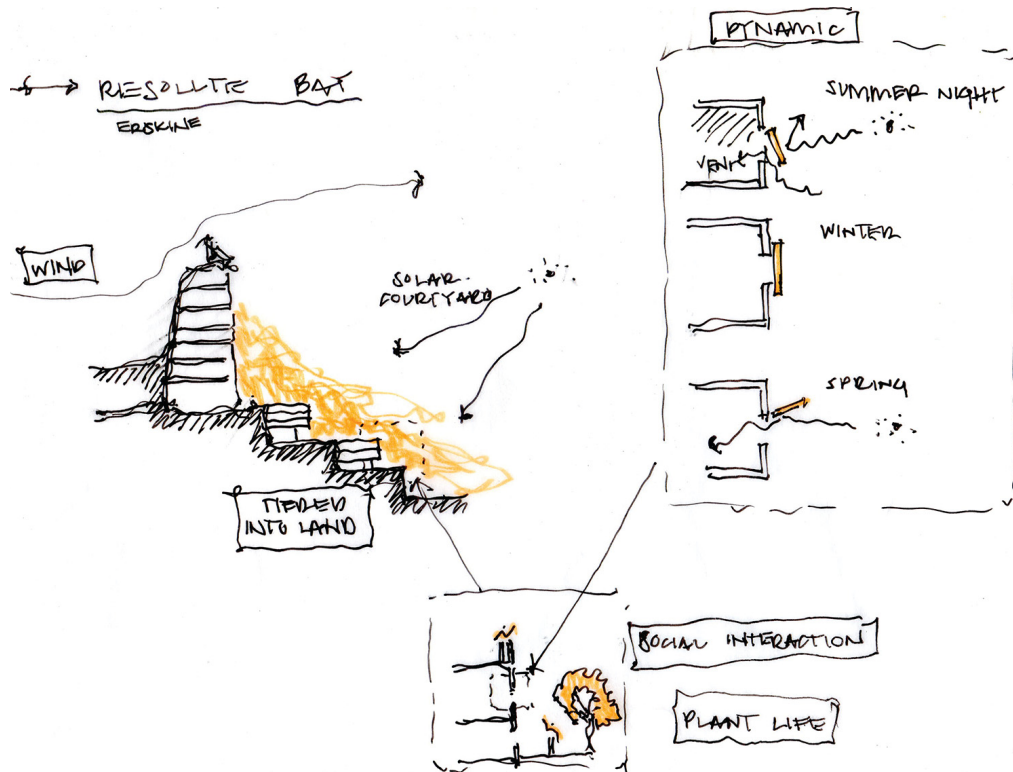 RESOLUTE BAY
ERSKINE
WIND
SOLAR
COURTYARD
TIERED
INTO LAND
DYNAMIC
SUMMER NIGHT
VENT
WINTER
SPRING
SOCIAL INTERACTION
PLANT LIFE